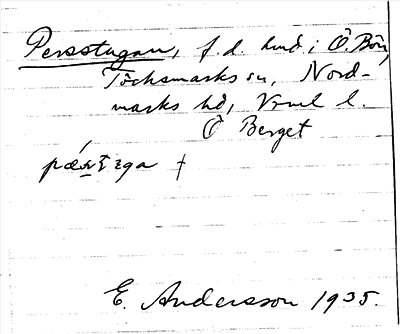 Persstugan, f.d. hmd. i Ö Bön,
Töcksmarks sn, Nord-
marks hd, Vrml l.
Ö Berget
†
E. Andersson 1935.